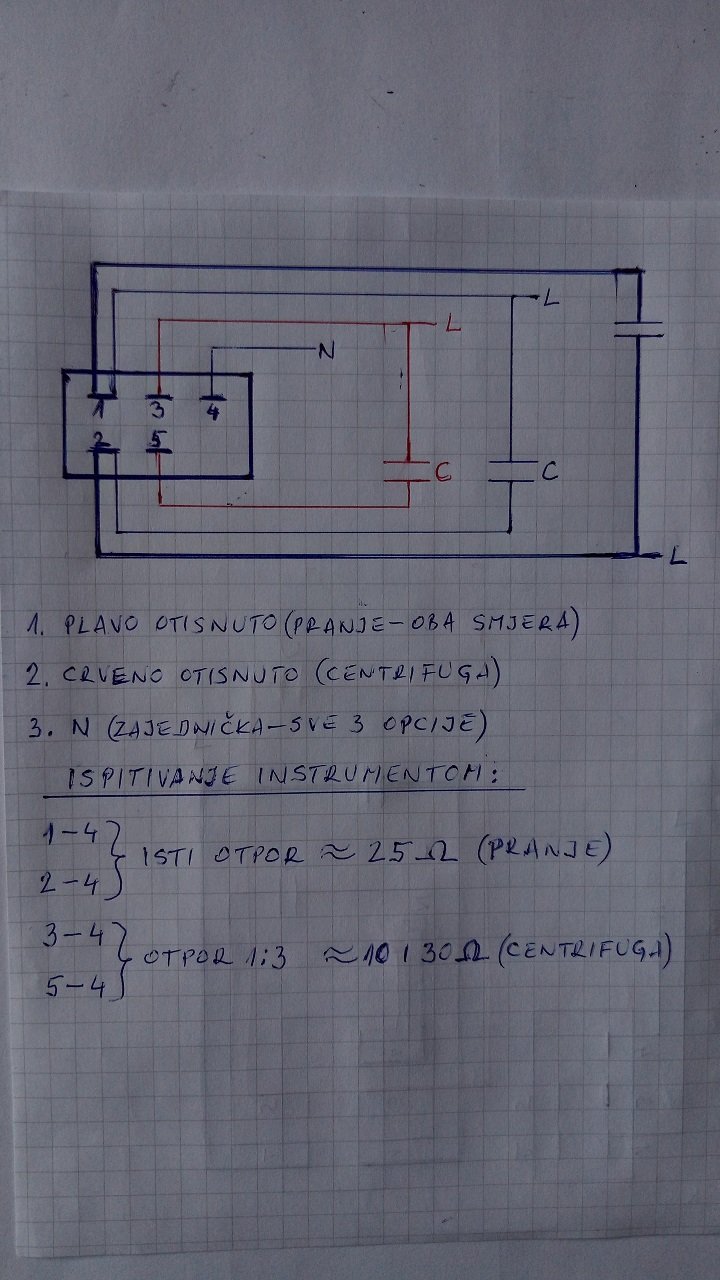 L
L
N
1 3 4
2 5
C C
L
1. PLAVO OTISNUTO (PRANJE-OBA SMJERA)
2. CRVENO OTISNUTO (CENTRIFUGA)
3. N (ZAJEDNIČKA-SVE 3 OPCIJE)
ISPITIVANJE INSTRUMENTOM:
1-4
2-4 } ISTI OTPOR ≈ 25Ω (PRANJE)
3-4
5-4 } OTPOR 1:3 ≈ 10 I 30Ω (CENTRIFUGA)